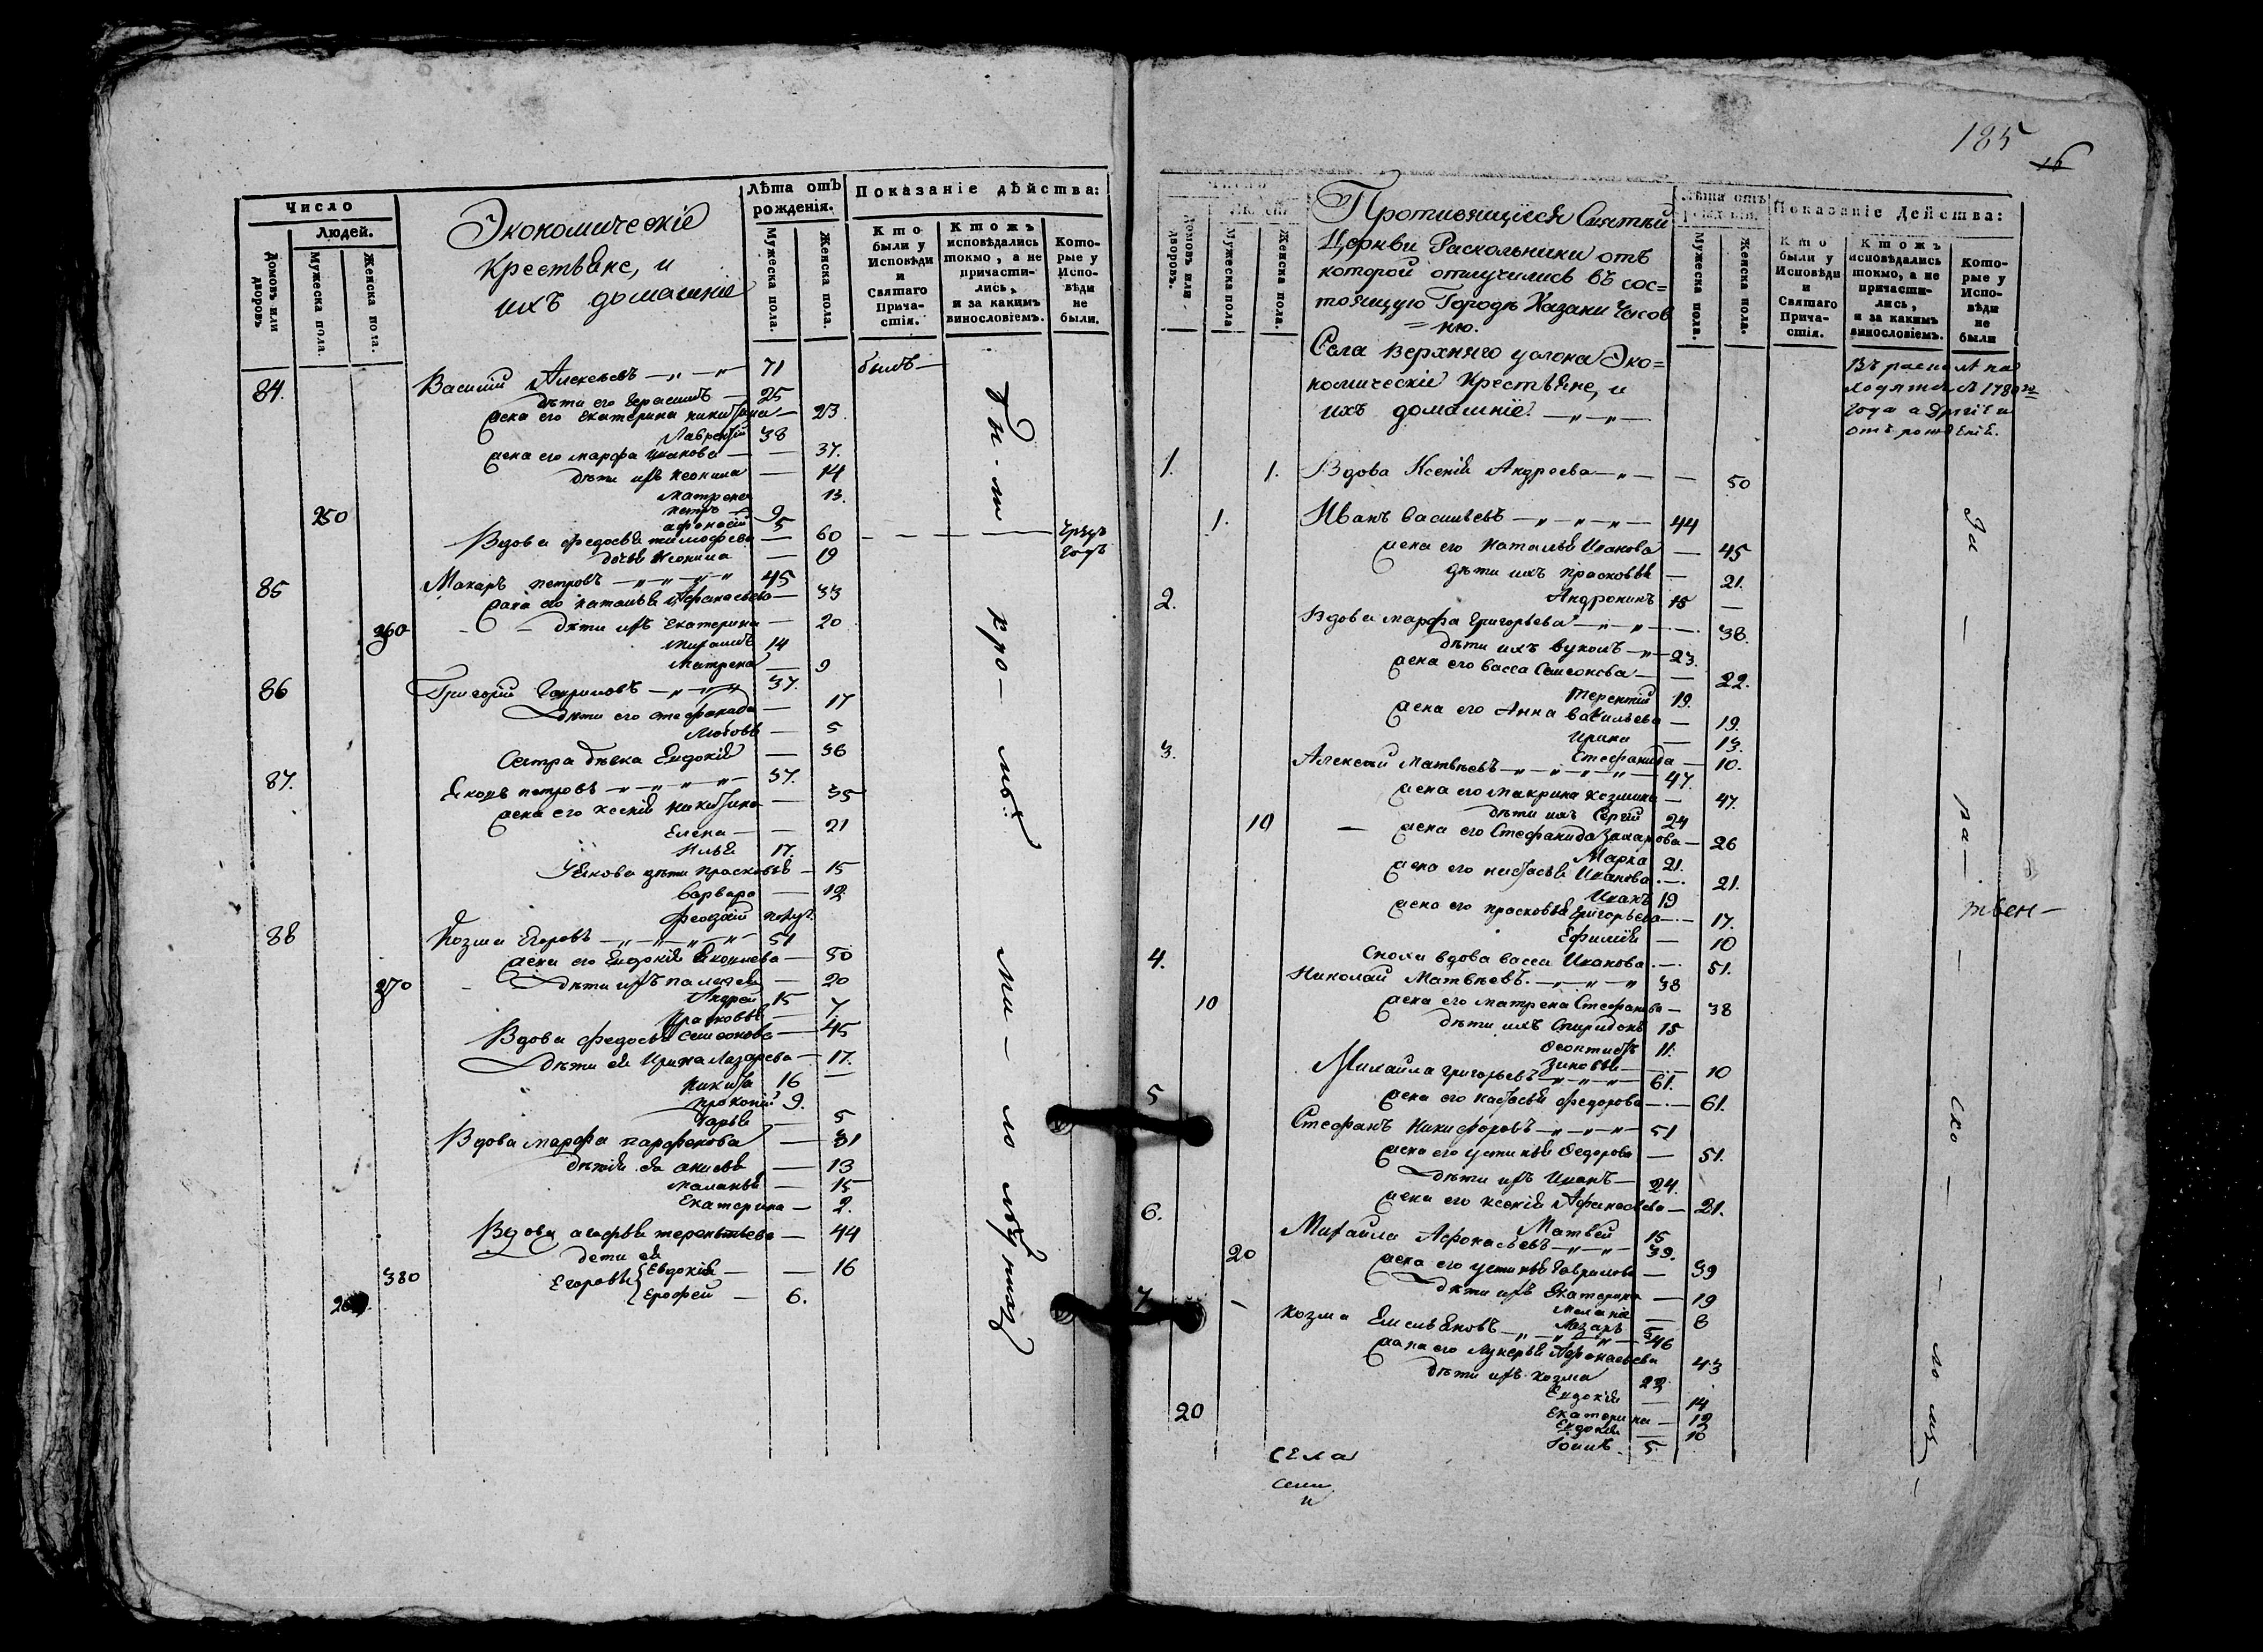 Число
Людей.
Домовъ или дворовъ
Мужеска пола.
Женска пола.
Экономическіе
крестьяне, и
ихъ домашніе
Лѣта отъ рожденія.
Мужеска пола.
Женска пола.
Показаніе дѣйства:
Кто были у Исповѣди и Святаго Прича-стія.
Ктожъ исповѣдались токмо, а не причасти-лись, и за какимъ винословіемъ.
Кото-рые у Испо-вѣди не были.
84. Василий Алексѣевъ 71 былъ
дѣти его Герасимъ 25
жена его Екатерина никитина 23.
Лаврентій 38
жена его марфа Иванова 37.
дѣти ихъ Неонила 14
Матрена 13.
250 петръ 9
афонасій 5
Вдова федосья тимофеева 60
дочь Неонила 19
85 Макаръ петровъ 45
жена его наталья Афонасьева 33
260 дѣти ихъ Екатерина 20
14
Матрена 9
86 Григорій Гавриловъ 37.
дѣти его стефанида 17
Любовь 5
Сестра дѣвка Евдокія 36
87. Яковъ петровъ 37.
жена его ксенія никитина 35
Елена 21
Илья 17.
Якова дѣти прасковья 15
варвара 12
88 Козма Егоровъ 51
жена его Евдокія Яковлева 50
270 дѣти ихъ палагея 20
Андрей 15
Прасковья 7
Вдова федосья Семенова 45
дѣти ея Ирина Лазарева 17.
никита 16
прокопій 9.
дарья 5
Вдова марфа парфенова 31
13
маланья 15
Екатерина 2.
Вдова агафья терентьева 44
дети ея
380 Егоровы Евдокія 16
Ерофей 6.
185
Противящіеся Святѣй
Церкви Раскольники отъ
которой отлучились въ сос=
тоящую Городѣ Казани Часов
=ню.
Села верхняго услона Эко=
номическіе Крестьяне, и
ихъ домашніе.
Лѣта отъ
Показаніе дѣйства:
Домовъ или дворовъ.
Мужеска пола
Женска пола.
Мужеска пола.
Женска пола.
Кто были у Исповѣди и Святаго Прича-стія.
Ктожъ исповѣдались токмо, а не причасти-лись, и за какимъ винословіемъ.
Кото-рые у Испо-вѣди не были
года а другіе
отъ рожденія.
1. 1. Вдова Ксенія Андреева 50
1. Иванъ васильевъ 44
жена его наталья Иванова 45
дѣти ихъ прасковья 21.
2. Андроникъ 15
Вдова марфа григорьева 38.
дѣти ихъ вуколъ 23.
жена его васса Семенова 22.
терентій 19.
жена его Анна васильева 19.
Ирина 13.
3. Стефанида 10.
Алексѣй Матвѣевъ 47.
жена его макрина козмина 47.
дѣти ихъ Сергій 24
10 жена его Стефанида Захарова 26
Марка 21.
жена его настасья Иванова 21.
Иванъ 19
жена его прасковья григорьева 17.
Ефимія 10
4. Сноха вдова васса Иванова 51.
Николай Матвѣевъ. 38
10 жена его матрена Стефанова 38
дѣти ихъ Спиридонъ 15
Феоптистъ 11.
Зиновья 10
5 Михайла григорьевъ 61.
жена его настасья федорова 61.
Стефанъ Никифоровъ 51
жена его устинья Федорова 51.
дѣти ихъ Иванъ 24.
жена его ксенія Афанасьева 21.
6. Матвей 15
20 Михайла Афонасьевъ 39.
жена его устинья гаврилова 39
дѣти ихъ Екатерина 19
Меланія 8
7 Лазарь 5
Козма Емельяновъ 46
жена его Лукерья Афонасьева 43
дѣти ихъ козма 22
Евдокія 14
20 Екатерина 12
Евдокія 10
5.
села